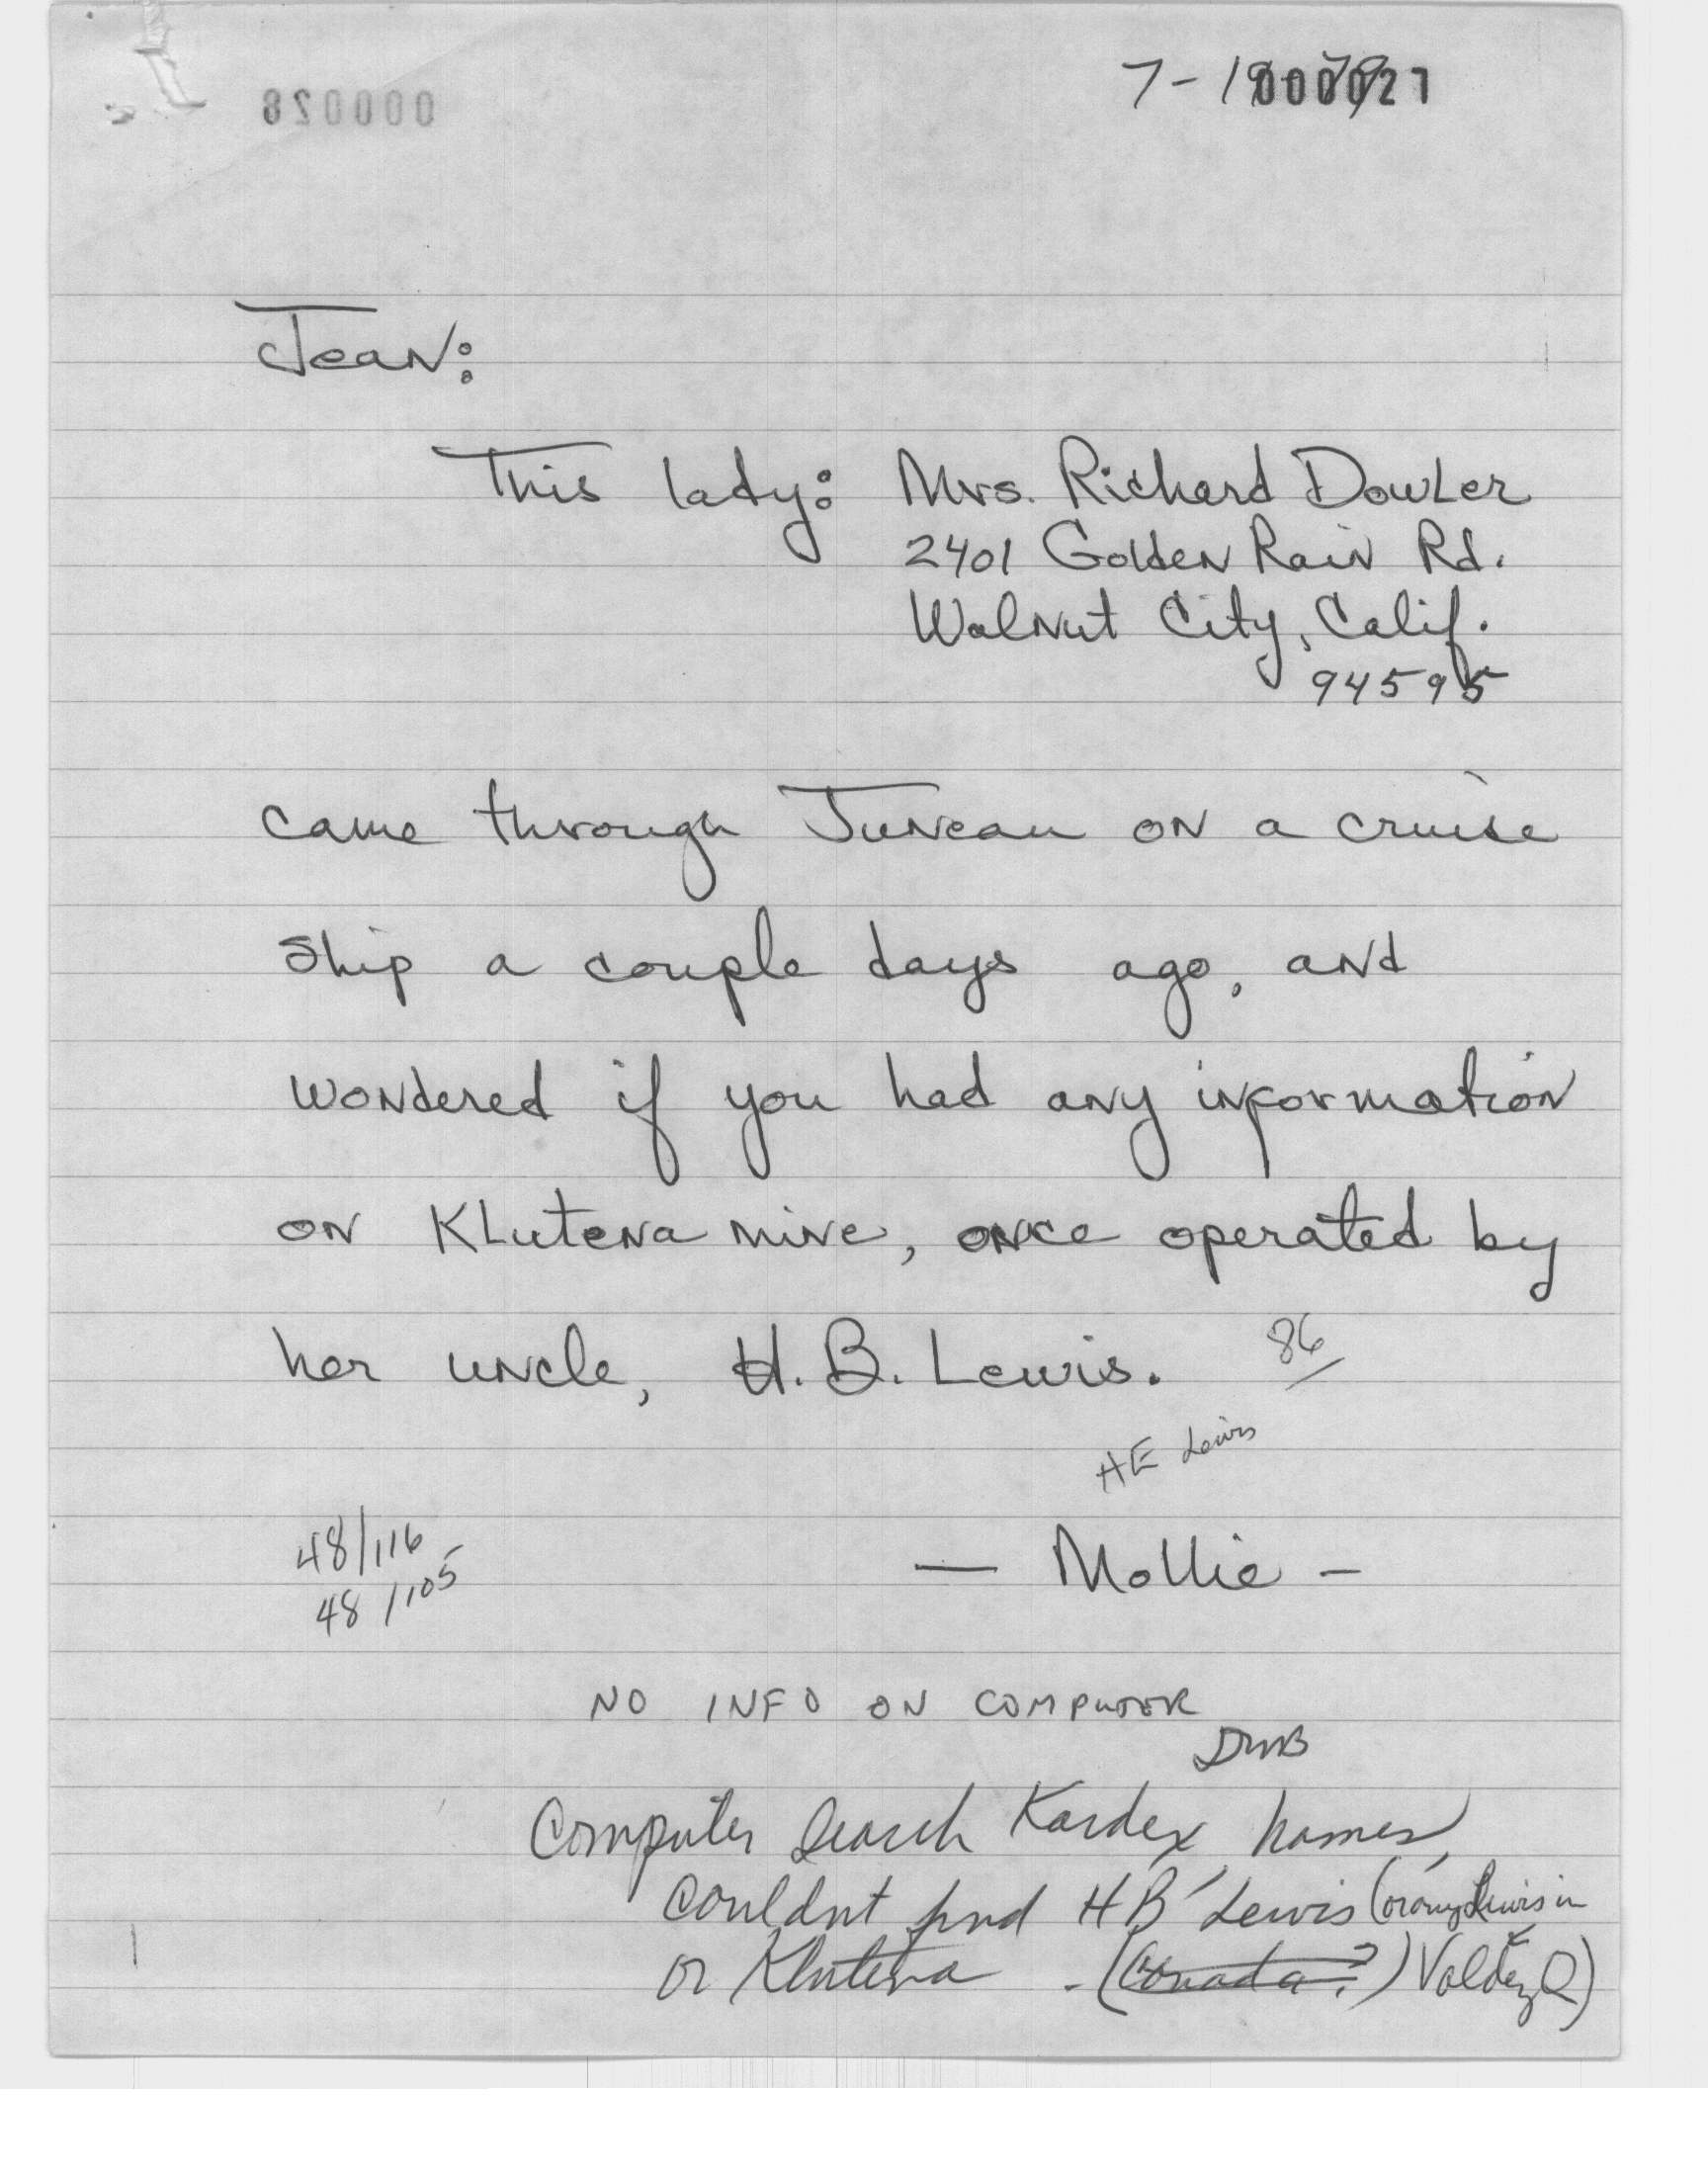 7-19-79
000027
000028
Jean:
This lady: Mrs. Richard Dowler
2401 Golden Rain Rd.
Walnut City, Calif.
94595
came through Juneau on a cruise
ship a couple days ago, and
wondered if you had any information
on Klutena mine, once operated by
her uncle, H.B. Lewis. 86
HE Lewis
48/116
48/105
— Mollie —
NO INFO ON COMPUTER
Computer Search Kardex names,
Couldnt find HB Lewis (or any Lewis in
or Klutena - (Canada?) Valdez Q)